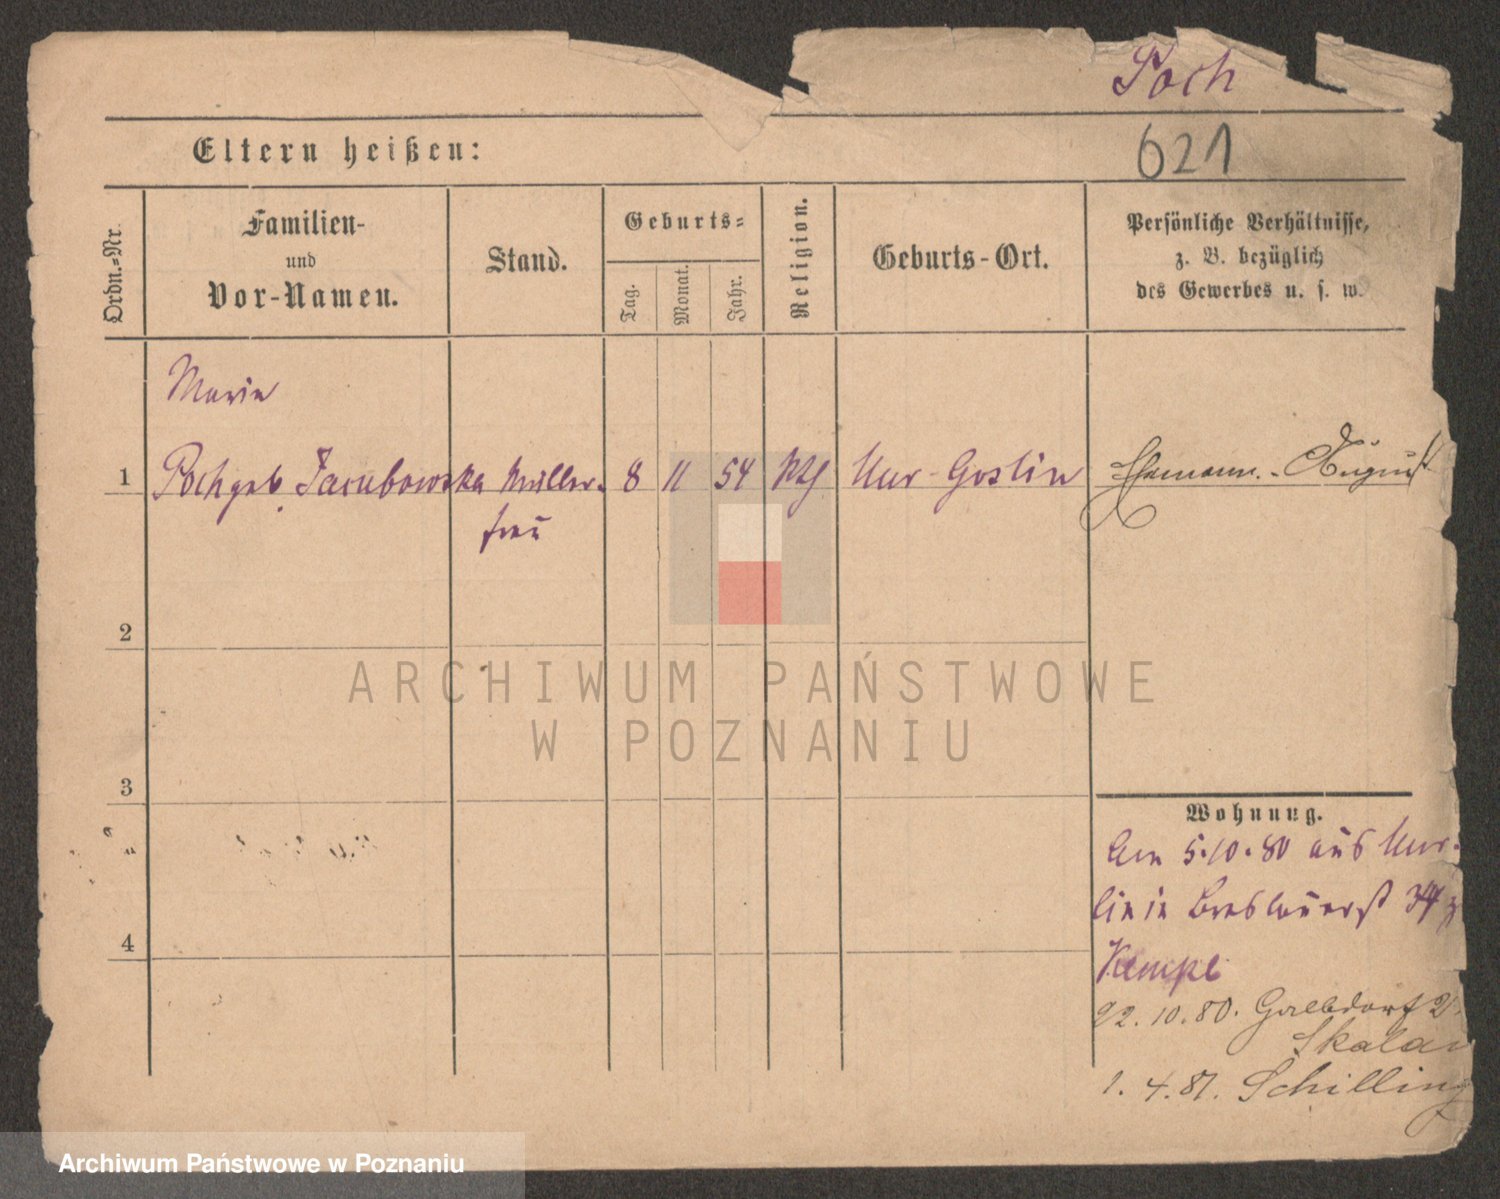 Poch
621
Eltern heißen:
Ordn.-Nr.
Familien-
und
Vor-Namen.
Stand.
Geburts-
Tag.
Monat.
Jahr.
Religion.
Geburts-Ort.
Persönliche Verhältnisse,
z. B. bezüglich
des Gewerbes u. s. w.
Marie
1 Poch geb. Jacubowska Müller- 8 11 54 kth Mur-Goslin August
frau
2
3
4
Wohnung.
Am 5.10.80 aus
in Breslauerst 34
Kempe
22.10.80.
Skala
1.4.81. Schilling
ARCHIWUM PAŃSTWOWE
W POZNANIU
Archiwum Państwowe w Poznaniu